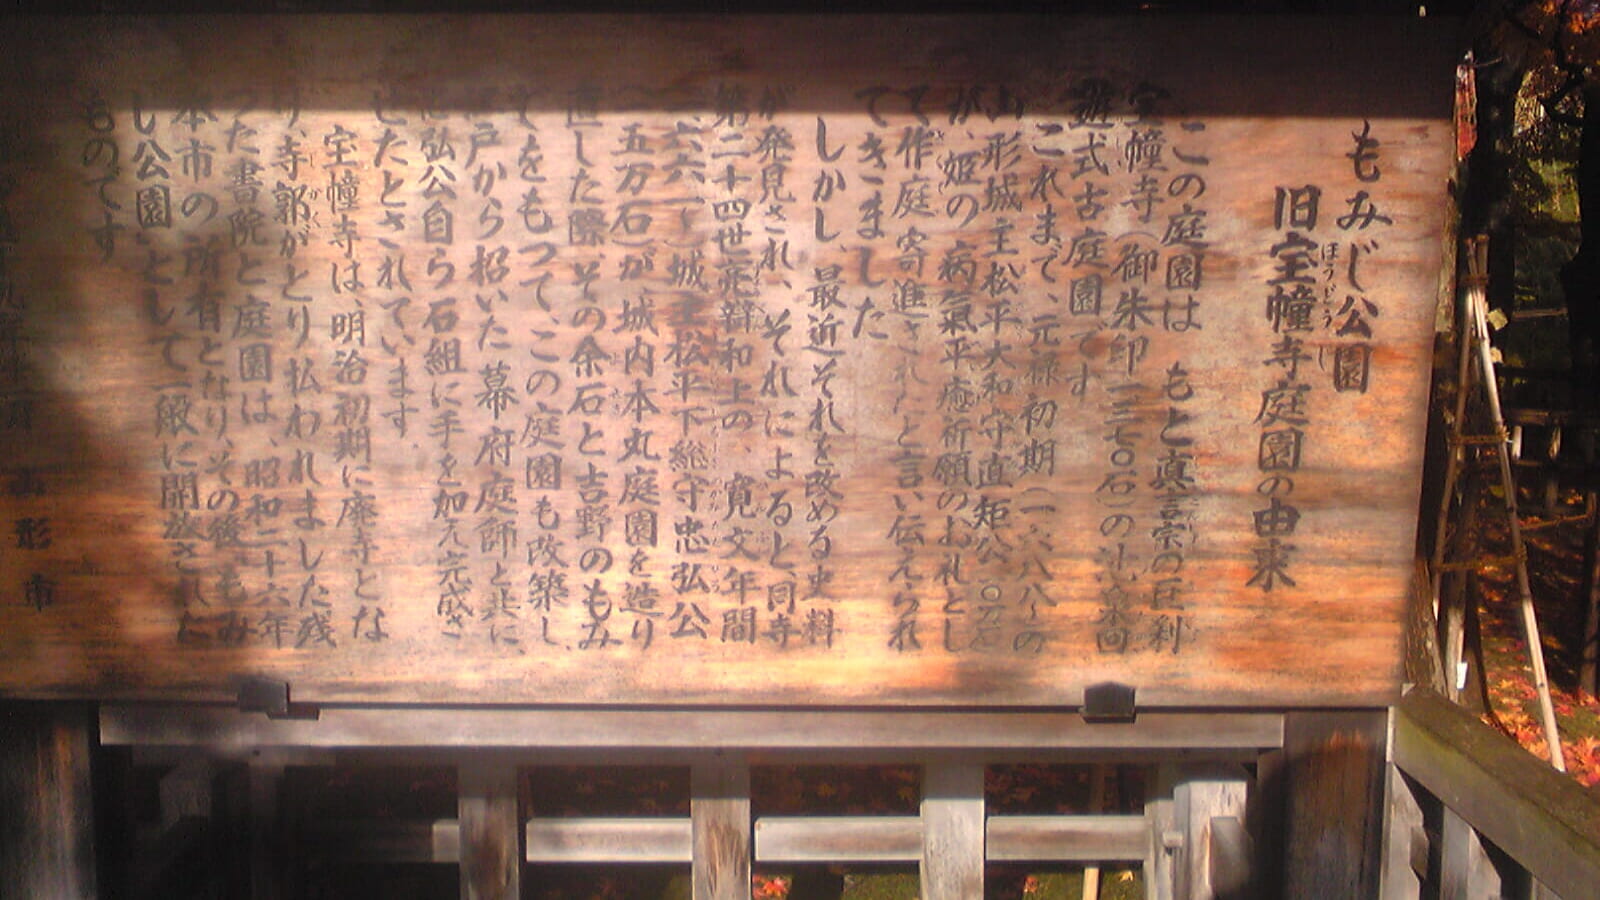 もみじ公園
旧宝幢寺庭園の由来
ほうどう じ
この庭園は もと真言宗の巨刹
宝幢寺(御朱印一三七〇石)の池泉回
遊式古庭園です
これまで、元禄初期(一六八八~の
山形城主松平大和守直矩公一〇万石
が、姫の病氣平癒祈願のお礼とし
て作庭寄進されたと言い伝えられ
てきました
しかし、最近それを改める史料
が発見され、それによると同寺
第二十四世 和上の、寛文年間
一六六一~)城主松平下総守忠弘公
一五万石)が、城内本丸庭園を造り
直した際、その余石と吉野のもみ
てをもつて、この庭園も改築し、
江戸から招いた幕府庭師と共に、
に弘公自ら石組に手を加え完成さ
したとされています。
宝幢寺は、明治初期に廃寺とな
り、寺郭がとり払われました残
った書院と庭園は、昭和二十六年
本市の所有となり、その後「もみ
じ公園」として一般に開放された
ものです
山形市